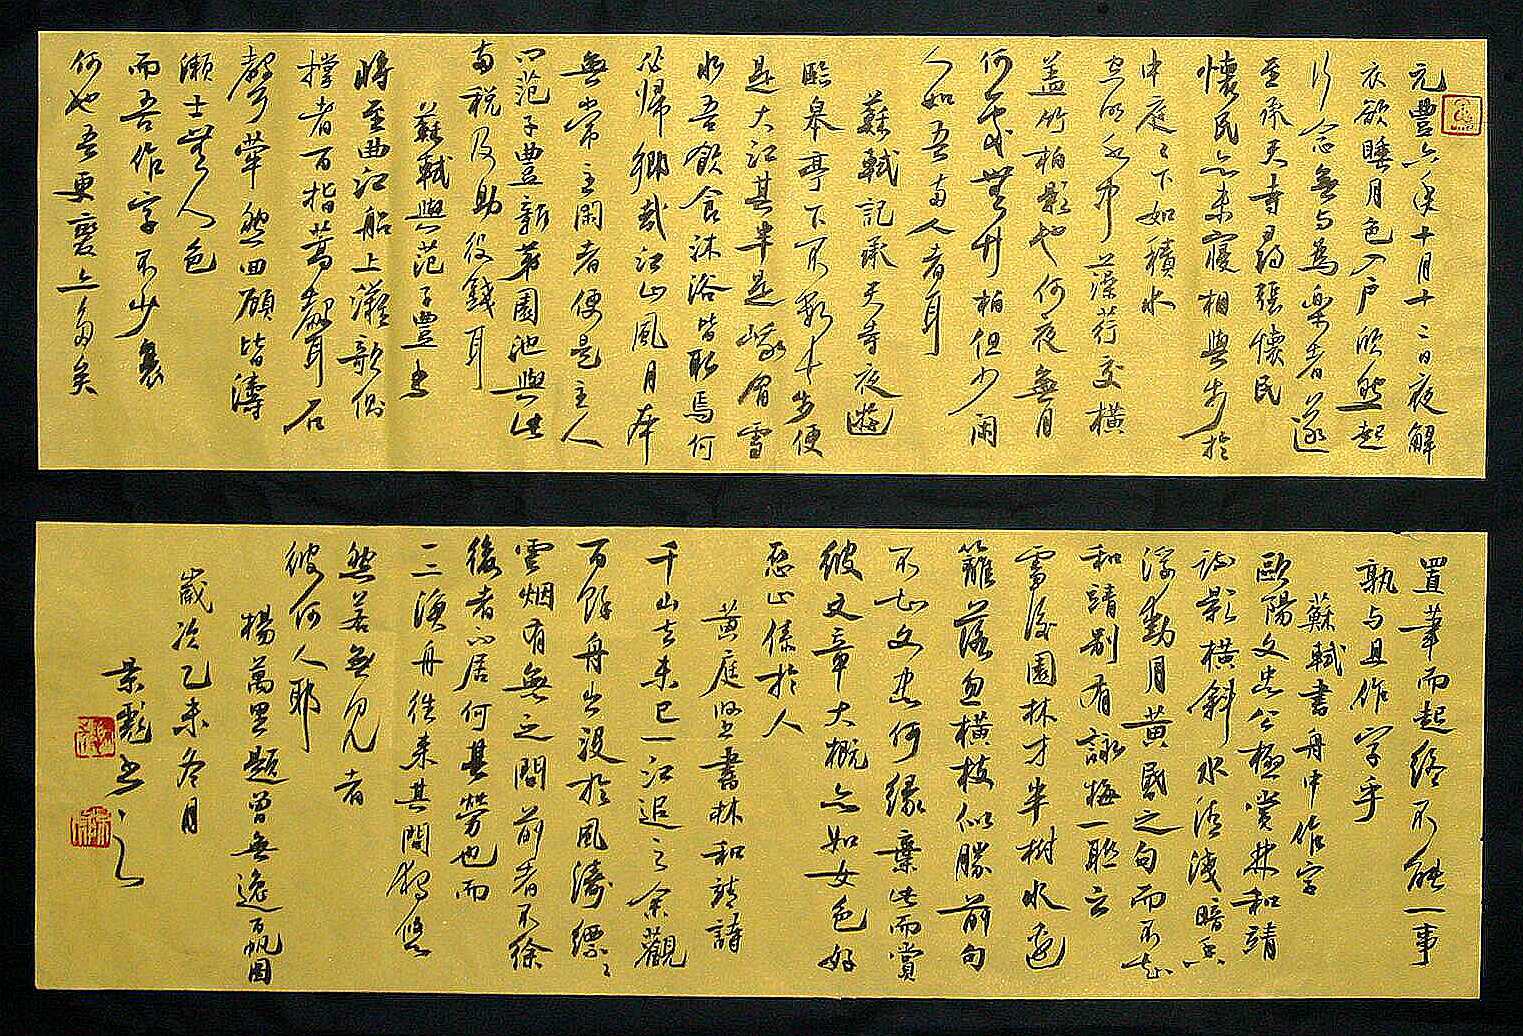 元豐六年十月十二日夜解
衣欲睡月色入戶欣然起
行念無与為樂者遂
至承天寺尋張懷民
懷民亦未寢相與步於
中庭〻下如積水
空明水中藻荇交橫
盖竹柏影也何夜無月
何處無竹柏但少閑
人如吾兩人者耳
蘇軾記承天寺夜遊
臨皋亭下不數十步便
是大江其半是峨眉雪
水吾飲食沐浴皆取焉何
必歸鄉哉江山風月本
無常主閑者便是主人
問范子豐新第園池與此
兩稅及助役錢耳
蘇軾與范子豐書
將至曲江船上灘欹側
撐者百指篙聲石
聲犖然四顧皆濤
瀨士無人色
而吾作字不少衰
何也吾更變亦多矣
置筆而起終不能一事
孰与且作字乎
蘇軾書舟中作字
歐陽文忠公極賞林和靖
疏影橫斜水清淺暗香
浮動月黃昏之句而不知
和靖別有詠梅一聯云
雪後園林才半樹水邊
籬落忽橫枝似勝前句
不知文忠何緣棄此而賞
彼文章大概亦如女色好
惡止係於人
黃庭堅書林和靖詩
千山去未已一江追之余觀
百餘舟出沒於風濤縹〻
雲烟有無之間前者不徐
後者以居何其勞也而
一二漁舟往來其間獨悠
然若無見者
彼何人耶
楊萬里題曾無逸百帆圖
歲次乙未冬月
景彪书之